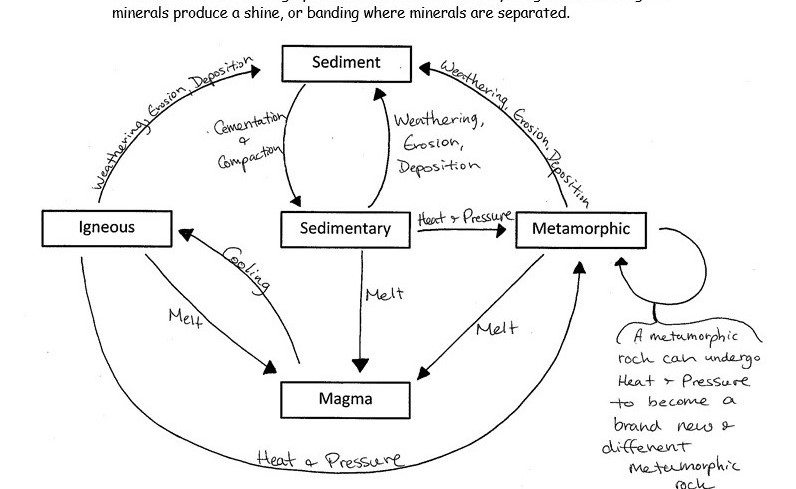 minerals produce a shine, or banding where minerals are separated.
Sediment
Weathering, Erosion, Deposition
Weathering, Erosion, Deposition
Cementation
&
Compaction
Weathering,
Erosion,
Deposition
Igneous
Sedimentary
Heat & Pressure
Metamorphic
Cooling
Melt
Melt
Melt
Magma
Heat & Pressure
A metamorphic
rock can undergo
Heat & Pressure
to become a
brand new &
different
metamorphic
rock